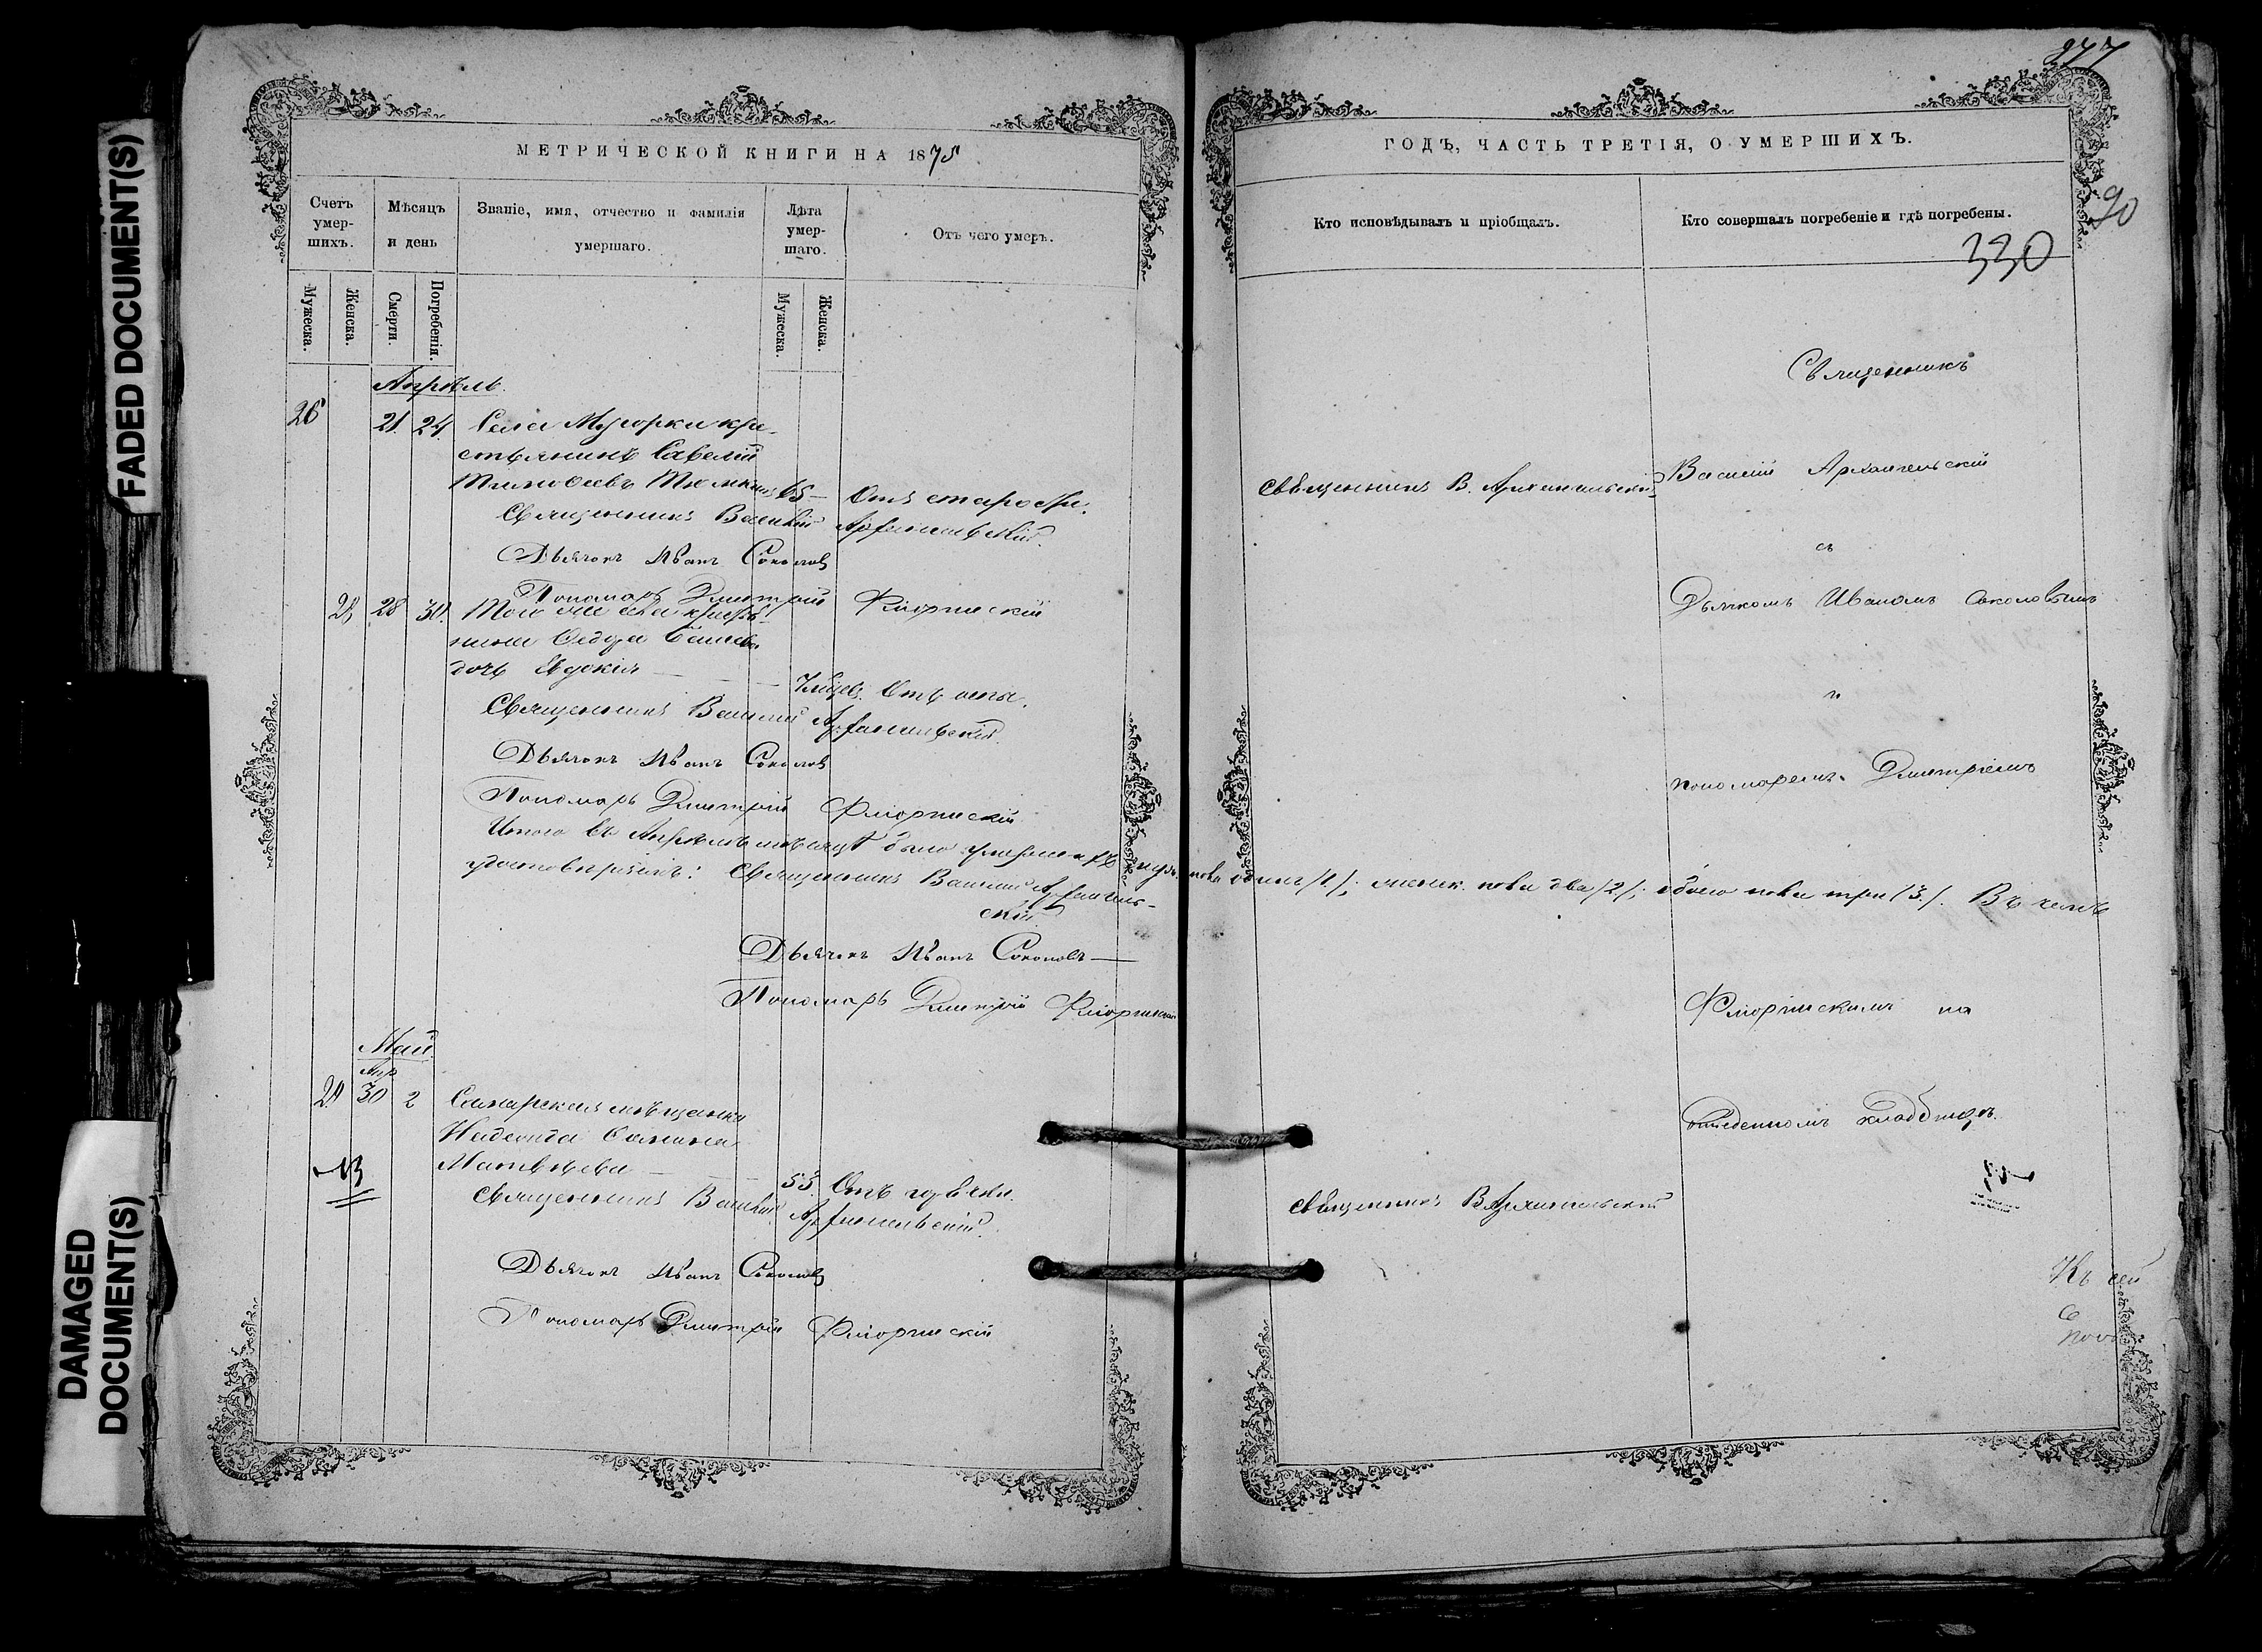 FADED DOCUMENT(S)
DAMAGED
DOCUMENT(S)
МЕТРИЧЕСКОЙ КНИГИ НА 1875
Счетъ
умер-
шихъ.
Мѣсяцъ
и день
Званіе, имя, отчество и фамилія
умершаго.
Лѣта
умер-
шаго.
Отъ чего умеръ.
Мужеска.
Женска.
Смерти.
Погребенія.
Мужеска.
Женска.
Апрѣль.
26 21. 24. Села Мусорки кре-
стьянинъ Савелій
Тимоѳеевъ 65 — Отъ старости.
Священникъ Василій Архангельскій.
Дьячокъ Иванъ Соколовъ
Пономарь Дмитрій Флоринскій
28 30. Того же села
дочь Евдокія — Отъ оспы.
Священникъ Василій Архангельскій.
Дьячокъ Иванъ Соколовъ
Пономарь Дмитрій Флоринскій
Итого въ Апрѣлѣ мѣсяцѣ было умершихъ муж. пола одинъ /1/; женск. пола два /2/; обоего пола три /3/. Въ чемъ
удостовѣряемъ: Священникъ Василій Архангель-
скій
Дьячекъ Иванъ Соколовъ —
Пономарь Дмитрій Флоринскій
Май
Апр
29 30 2 Самарская мѣщанка
Надежда
Матвѣева — 53. Отъ горячки.
Священникъ Василій Архангельскій.
Дьячокъ Иванъ Соколовъ
Пономарь Дмитрій Флоринскій
277
ГОДЪ, ЧАСТЬ ТРЕТІЯ, О УМЕРШИХЪ.
Кто исповѣдывалъ и пріобщалъ.
Кто совершалъ погребеніе и гдѣ погребены.
90
330
Священникъ
Священникъ В. Архангельскій
Василій Архангельскій
съ
Дьячкомъ Иваномъ Соколовымъ
и
пономаремъ Дмитріемъ
Флоринскимъ на
отведенномъ кладбищѣ.
Священникъ В. Архангельскій
Къ сей